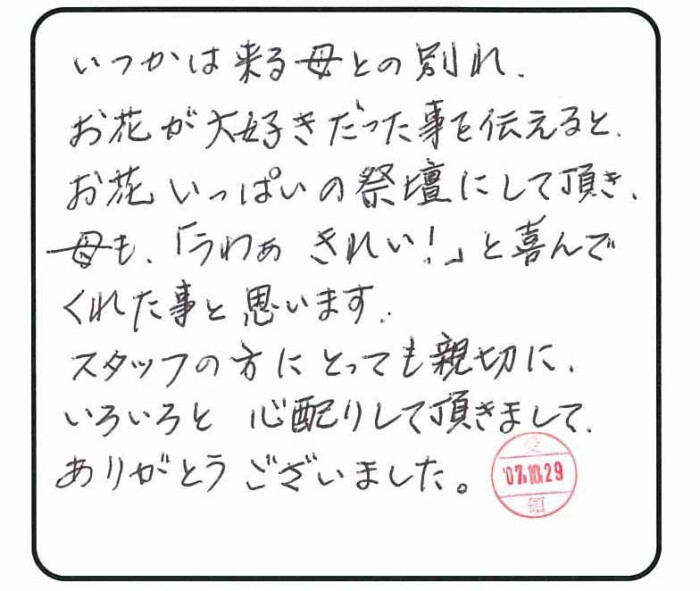 いつかは来る母との別れ、
お花が大好きだった事を伝えると、
お花いっぱいの祭壇にして頂き、
母も、「うわぁ きれい!」と喜んで
くれた事と思います。
スタッフの方にとっても親切に、
いろいろと 心配りして頂きまして、
ありがとうございました。
受
'07.10.29
領